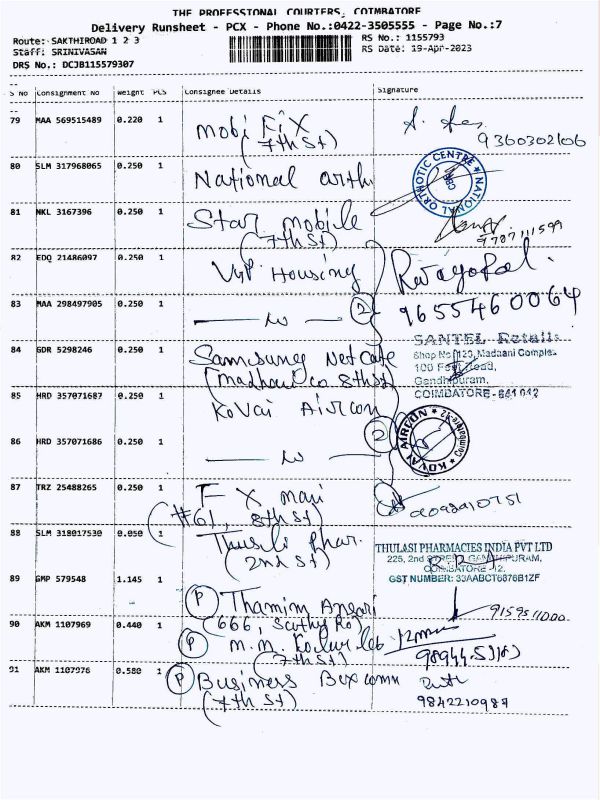 THE PROFESSIONAL COURIERS, COIMBATORE
Delivery Runsheet - PCX - Phone No.:0422-3505555 - Page No.:7
Route: SAKTHIROAD 1 2 3
RS No.: 1155793
Staff: SRINIVASAN
RS Date: 19-Apr-2023
DRS No.: DCJB115579307
S No Consignment No Weight PCS Consignee Details Signature
79 MAA 569515489 0.220 1 Mobi FiX
(7th St)
9360302106
80 SLM 317968065 0.250 1 National Orth
NATIONAL ORTHOTIC CENTRE
CBE
81 NKL 3167396 0.250 1 Star mobile
(7th St)
9787111599
82 EDQ 21486097 0.250 1 VGP Housing
Rajagopal.
83 MAA 298497905 0.250 1
2
9655460064
84 GDR 5298246 0.250 1 Samsung Net Cafe
(Madhani Co 8th St)
SANTEL Retails
Shop No:123, Madaani Complex
100 Feet Road,
Gandhipuram,
COIMBATORE - 641 012
85 HRD 357071687 0.250 1 Kovai Aircon
86 HRD 357071686 0.250 1
2
KOVAI AIRCON
Coimbatore
87 TRZ 25488265 0.250 1 F X
(#61, 8th St)
88 SLM 318017530 0.050 1 Thulsi Phar.
(2nd St)
THULASI PHARMACIES INDIA PVT LTD
225, 2nd STREET, GANDHIPURAM,
COIMBATORE - 12.
GST NUMBER: 33AABCT6876B1ZF
89 GMP 579548 1.145 1 P Thamim Ansari
(666, Sathy Ro)
90 AKM 1107969 0.440 1 P M.M.
(7th St)
91 AKM 1107976 0.580 1 P Business Box comm
(7th St)
9842210987